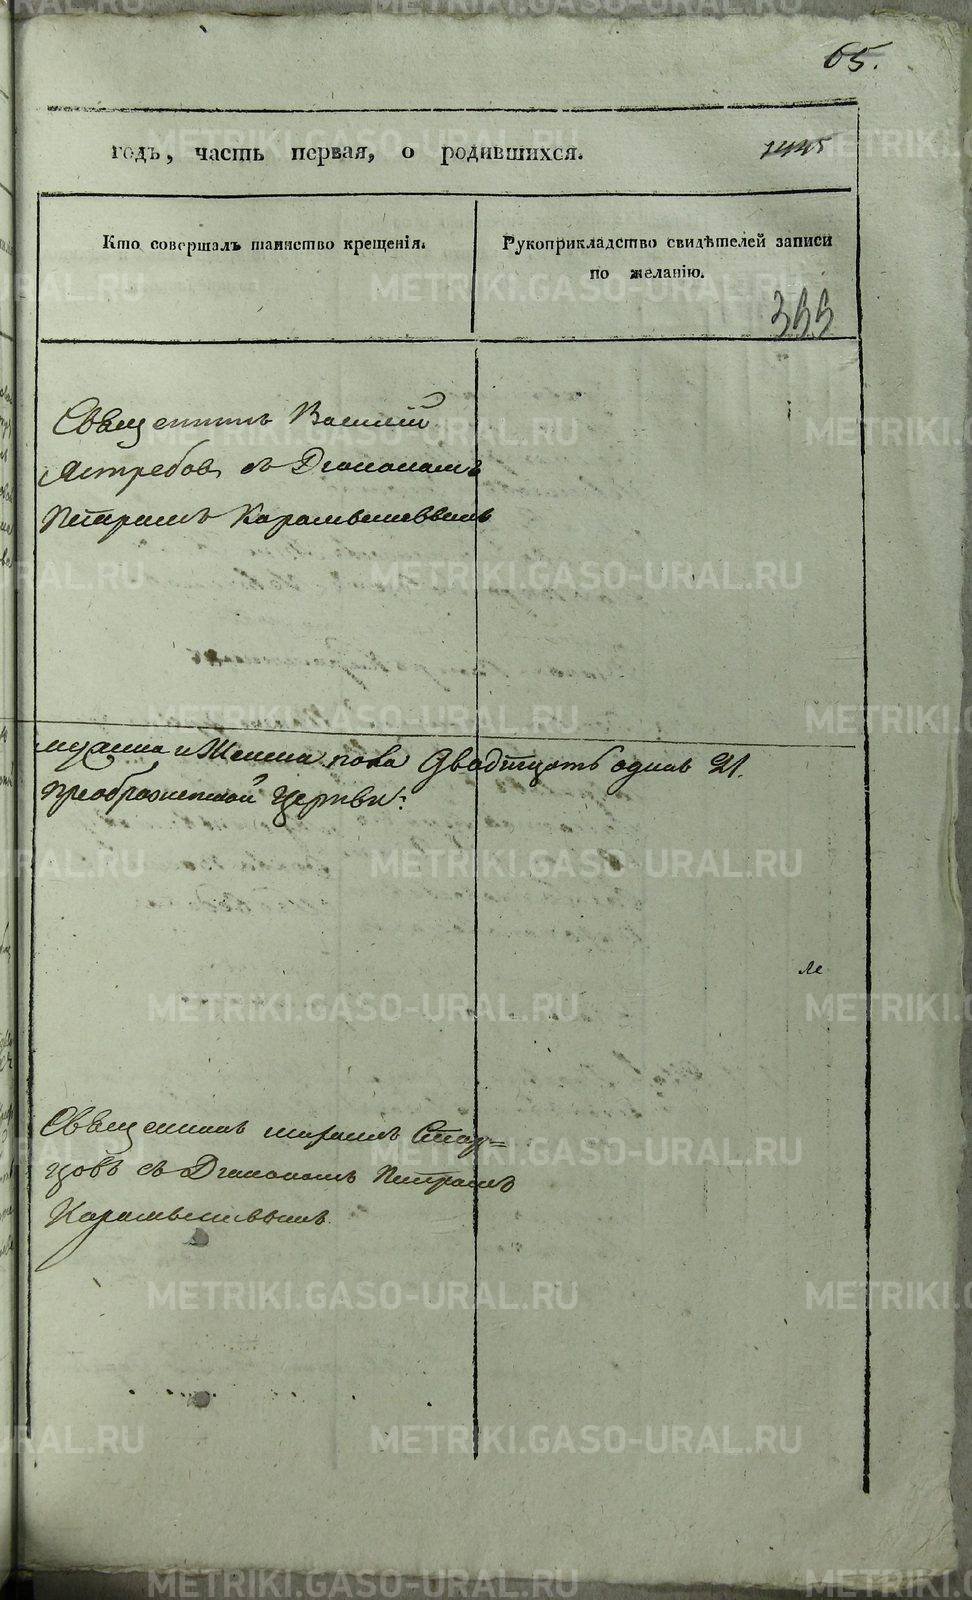 65.
годъ, часть первая, о родившихся.
Кто совершалъ таинство крещенія.
Рукоприкладство свидѣтелей записи
по желанію.
Священникъ Василій
Ястребовъ съ Діакономъ
Петромъ Карамышевымъ
женска пола Двадцать одинъ 21.
преображенской Церкви:
Священникъ Стар=
цовъ съ Діакономъ Петромъ
Карамышевымъ
METRIKI.GASO-URAL.RU